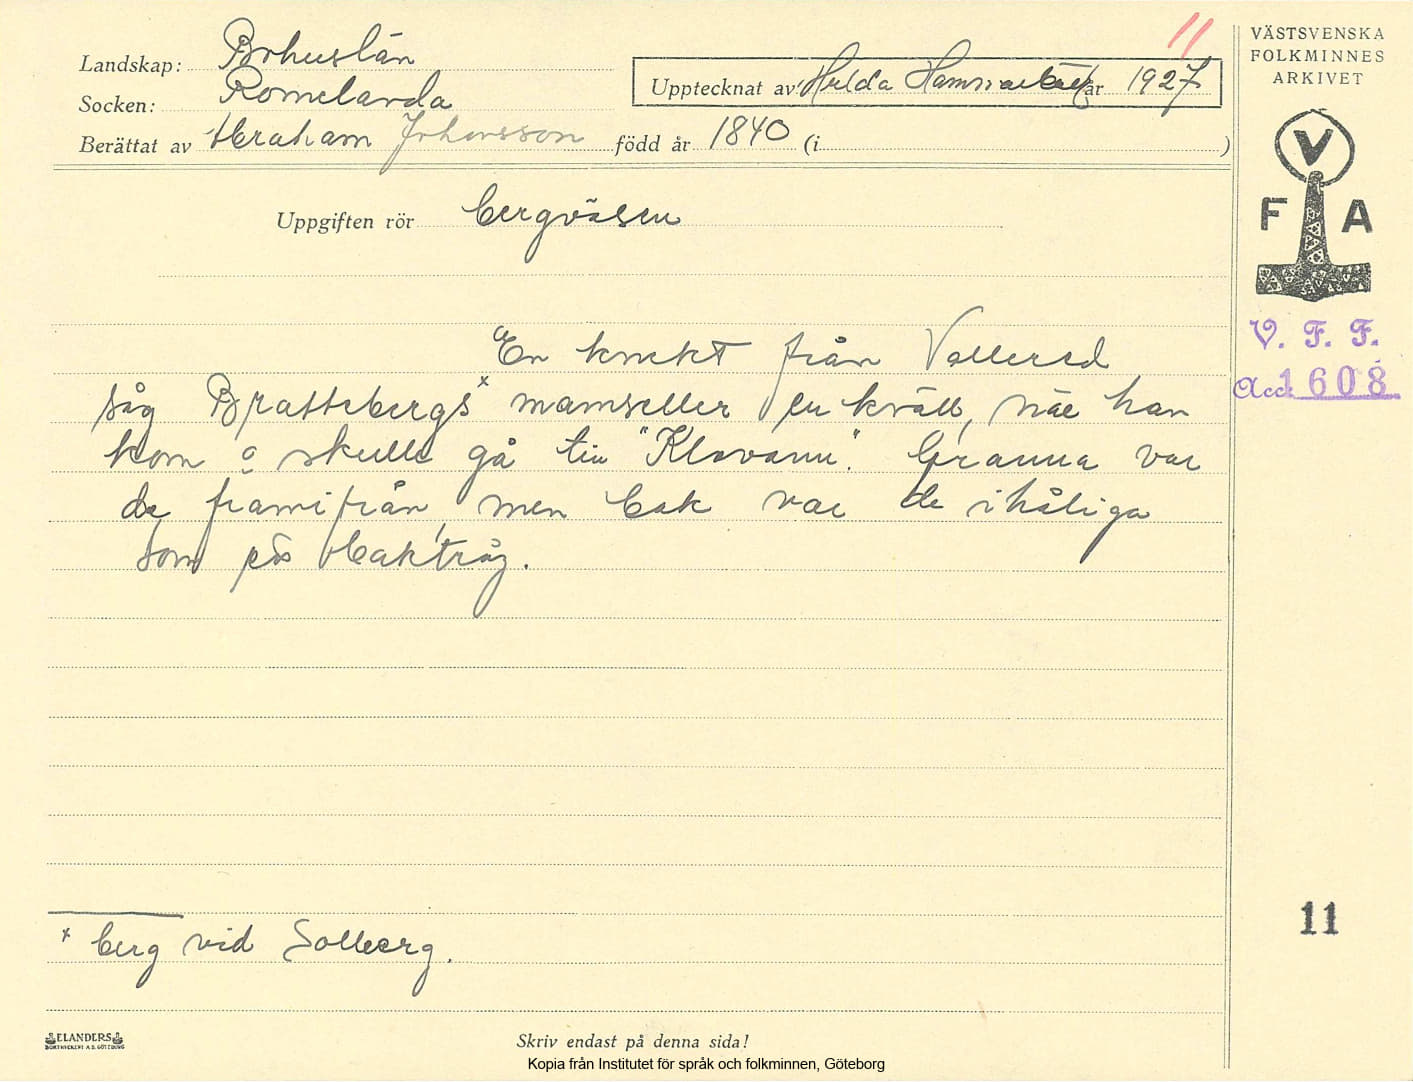 11
VÄSTSVENSKA
FOLKMINNES
ARKIVET
Landskap: Bohuslän
Socken: Romelanda
Upptecknat av: Hilda år 1927
Berättat av Abraham Johansson född år 1840 (i )
V
F A
Uppgiften rör bergväsen
V. F. F.
Acc. 1608
En knekt från Vallered
såg Brattebergs x mamseller en kväll, när han
kom o skulle gå till "Klovann". Granna var
de framifrån, men bak var de ihåliga
som ett baktråg.
11
x berg vid Solberg.
ELANDERS
BOKTRYCKERI A.B. GÖTEBORG
Skriv endast på denna sida!
Kopia från Institutet för språk och folkminnen, Göteborg